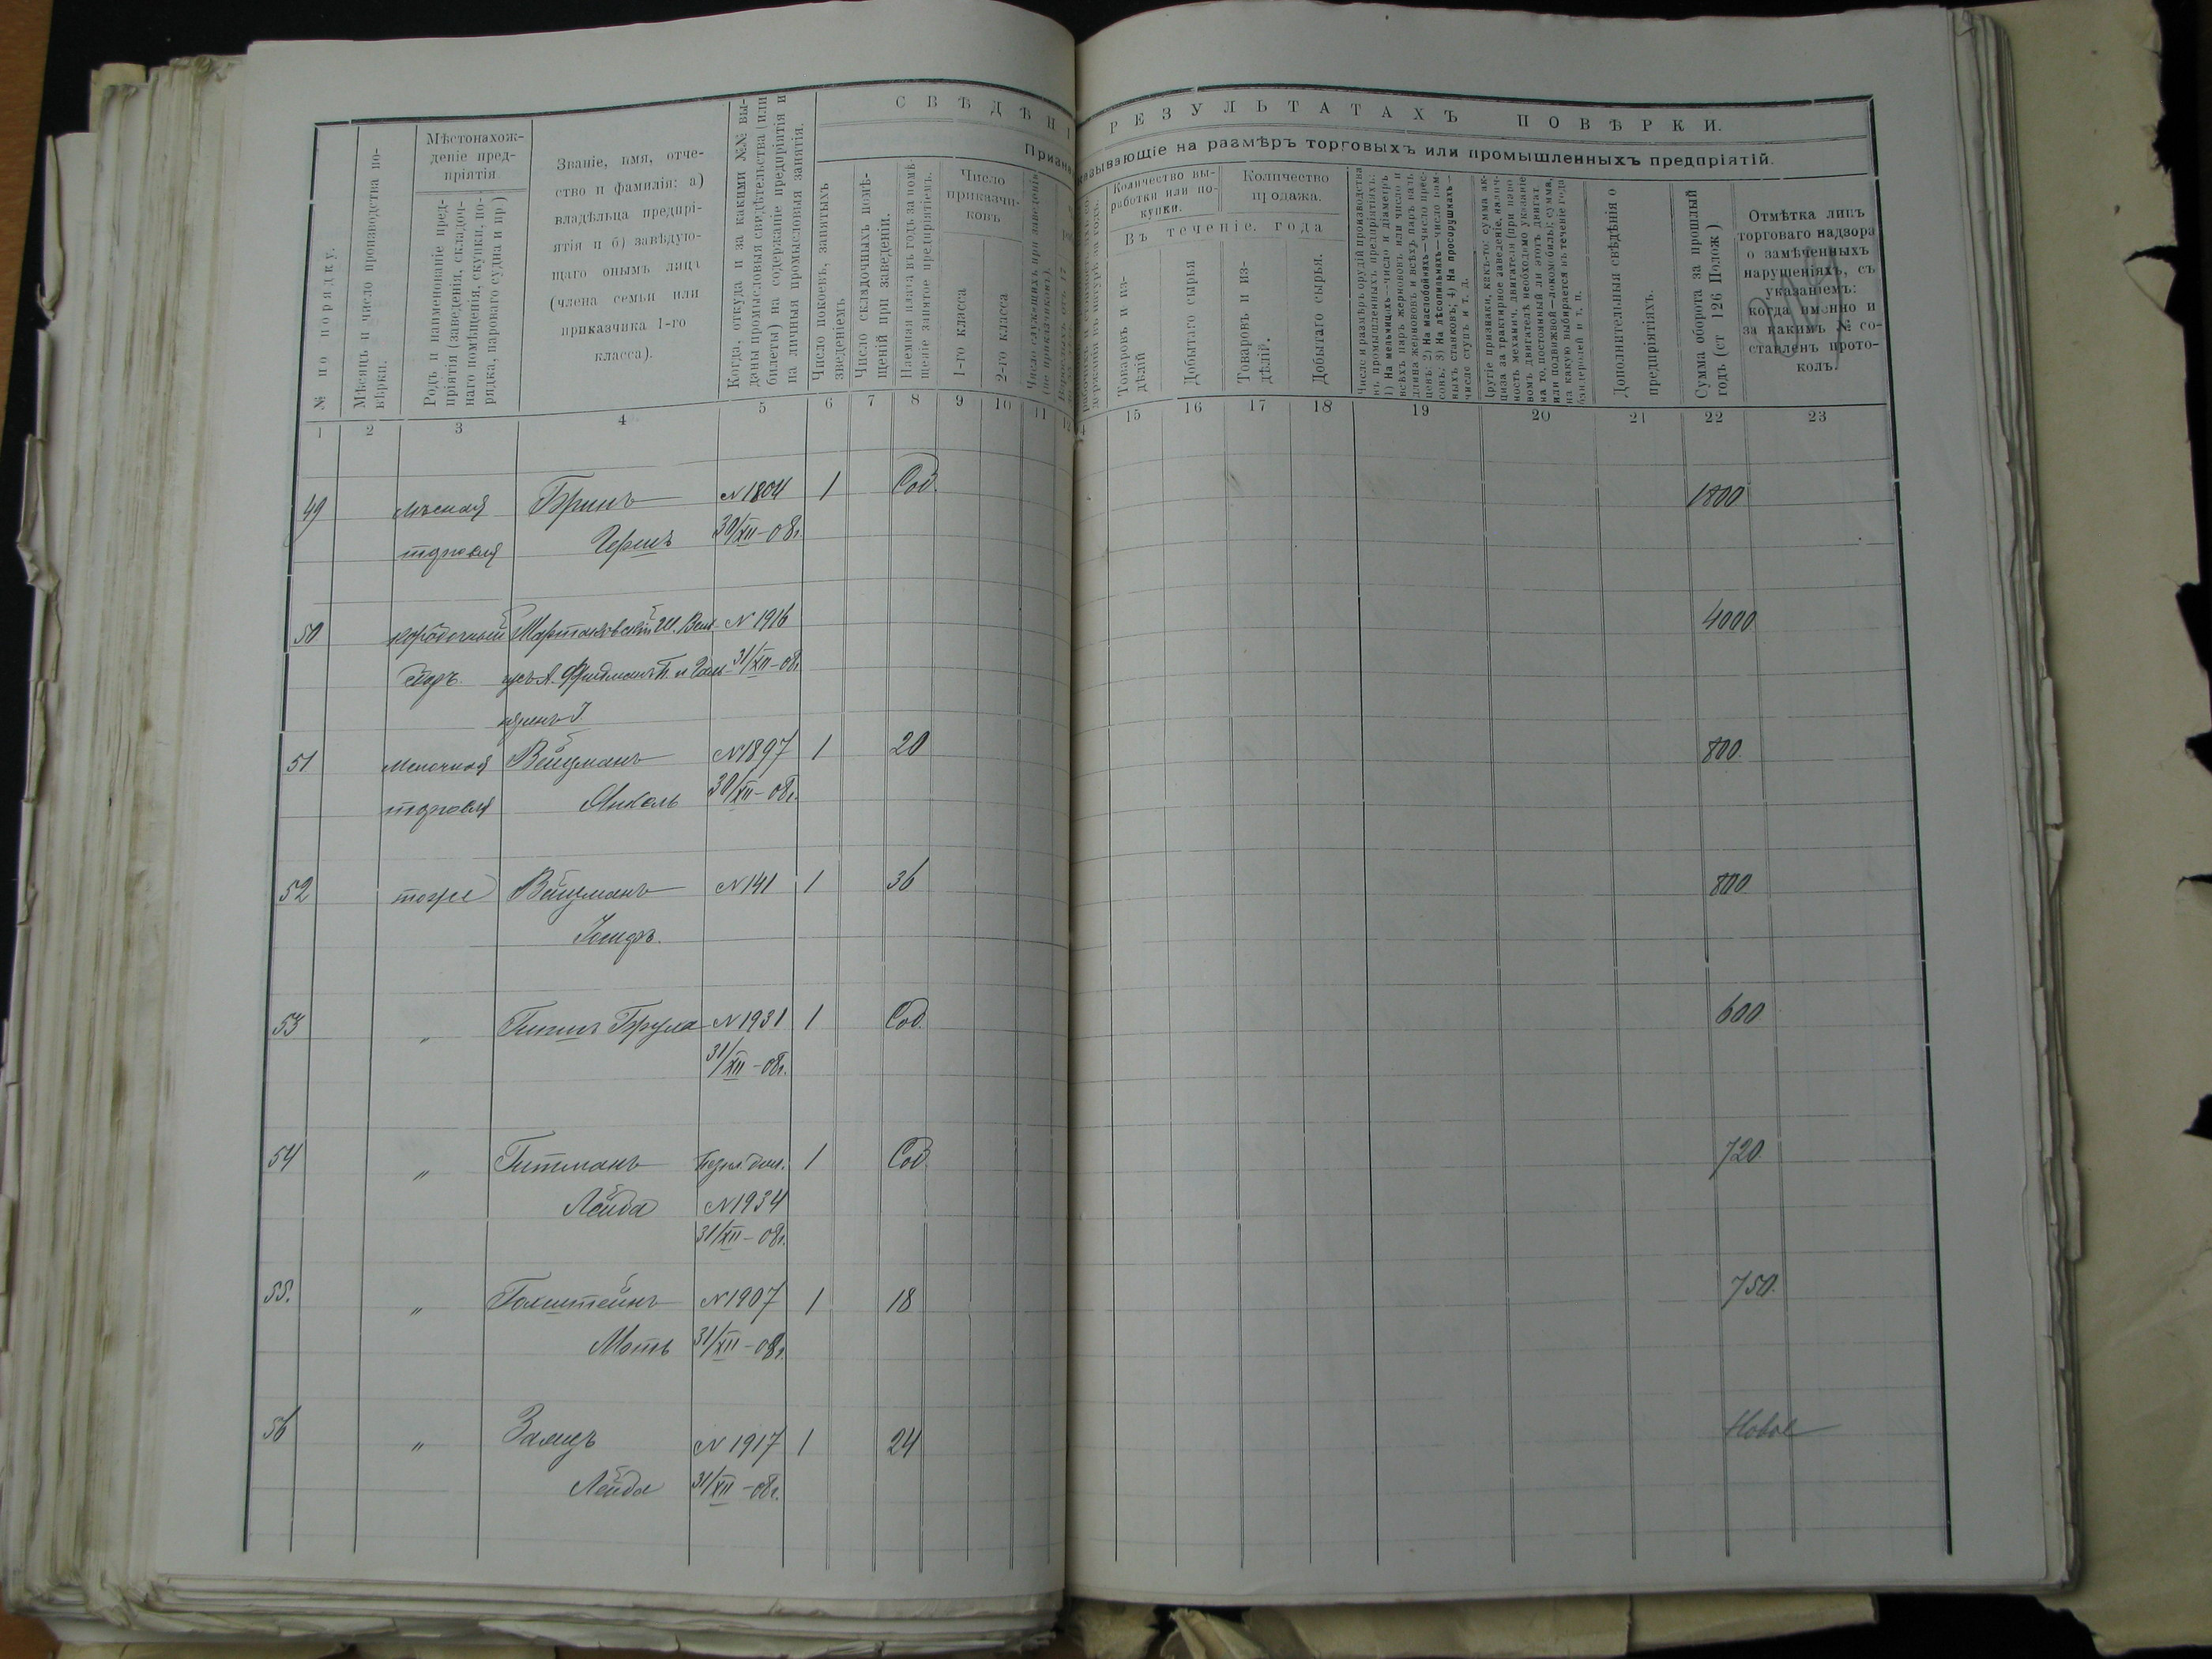 СВѢДѢНІ
РЕЗУЛЬТАТАХЪ ПОВѢРКИ.
Призна
казывающіе на размѣръ торговыхъ или промышленныхъ предпріятій.
№ по порядку.
Мѣсяцъ и число производства повѣрки.
Мѣстонахож-
деніе пред-
пріятія
Родъ и наименованіе пред-
пріятія (заведенія, складоч-
наго помѣщенія, скупки, по-
рядка, парового судна и пр )
Званіе, имя, отче-
ство и фамилія: а)
владѣльца предпрі-
ятія и б) завѣдую-
щаго онымъ лица
(члена семьи или
приказчика 1-го
класса).
Когда, откуда и за какими №№ вы-
даны промысловыя свидѣтельства (или
билеты) на содержаніе предпріятія и
на личныя промысловыя занятія.
Число покоевъ, занятыхъ
зведеніемъ
Число складочныхъ помѣ-
щеній при заведеніи.
Наемная плата въ годъ за помѣ-
щеніе занятое предпріятіемъ.
Число
приказчи-
ковъ
1-го класса
2-го класса
Число служащихъ при заведеніи
(не приказчиков).
Количество вы-
работки или по-
купки.
Количество
продажа.
Въ теченіе, года
Товаровъ и из-
дѣлій
Добытаго сырья
Товаровъ и из-
дѣлій.
Добытаго сырья.
Число и размѣръ орудій производства
въ промышленныхъ предпріятіяхъ:
1) На мельницахъ—число и діаметръ
всѣхъ паръ жерновов или число и
длина жерновов и всѣхъ паръ валь
цевъ; 2) На маслобойняхъ—число прес-
совъ; 3) На лѣсопильняхъ—число рам-
ныхъ станковъ; 4) На просорушкахъ—
число ступъ и т. д.
Другіе признаки, какъ-то: сумма ак-
циза за трактирное заведеніе, налич-
ность механич. двигателя (при паро
вомъ двигателѣ необходимо указаніе
на то, постоянный ли этотъ двигат.
или подвижной—локомобиль); сумма,
на какую выбирается въ теченіе года
бандеролей и т. п.
Дополнительныя свѣдѣнія о
предпріятіяхъ.
Сумма оборота за прошлый
годъ (ст 126 Полож )
Отмѣтка лицъ
торговаго надзора
о замѣченныхъ
нарушеніяхъ, съ
указаніемъ:
когда именно и
за какимъ № со-
ставленъ прото-
колъ.
1 2 3 4 5 6 7 8 9 10 11 12 15 16 17 18 19 20 21 22 23
49 мясная Бринъ N 1804 1 Сод. 1800
торговля Гершъ 30/XII-08г.
50 коробочный Мартаковскій Ш. Вай- N 1916 4000
сборъ. А. Фридманъ П. и 31/XII-08г.
51 Мелочная Вейцманъ N 1897 1 20 800.
торговля Янкель 30/XII-08г.
52 тоже Вейцманъ N 141 1 36 800
Іосифъ.
53 „ N 1931 1 Сод. 600
31/XII-08г.
54 „ Гитманъ 1 Сод. 720
Лейда N 1934
31/XII-08г.
55. „ Гольштейнъ N 1907 1 18 750.
Моть 31/XII-08г.
56 „ Заяцъ N 1917 1 24 Новое
Лейда 31/XII-08г.